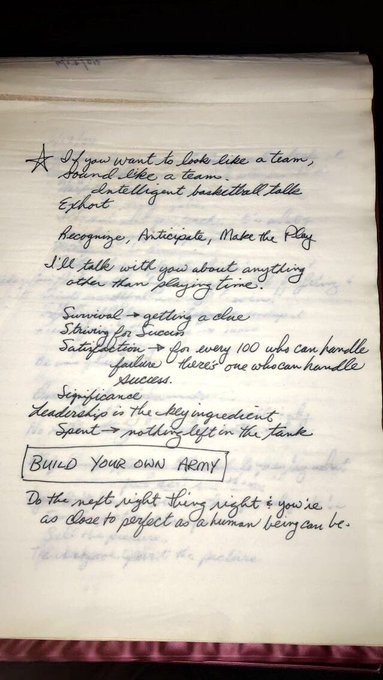 ☆ If you want to look like a team,
sound like a team.
Intelligent basketball talk
Exhort
Recognize, Anticipate, Make the Play
I'll talk with you about anything
other than playing time.
Survival → getting a clue
Striving for Success
Satisfaction → for every 100 who can handle
failure there's one who can handle
success.
Significance
Leadership is the key ingredient
Spent → nothing left in the tank
BUILD YOUR OWN ARMY
Do the next right thing right & you're
as close to perfect as a human being can be.